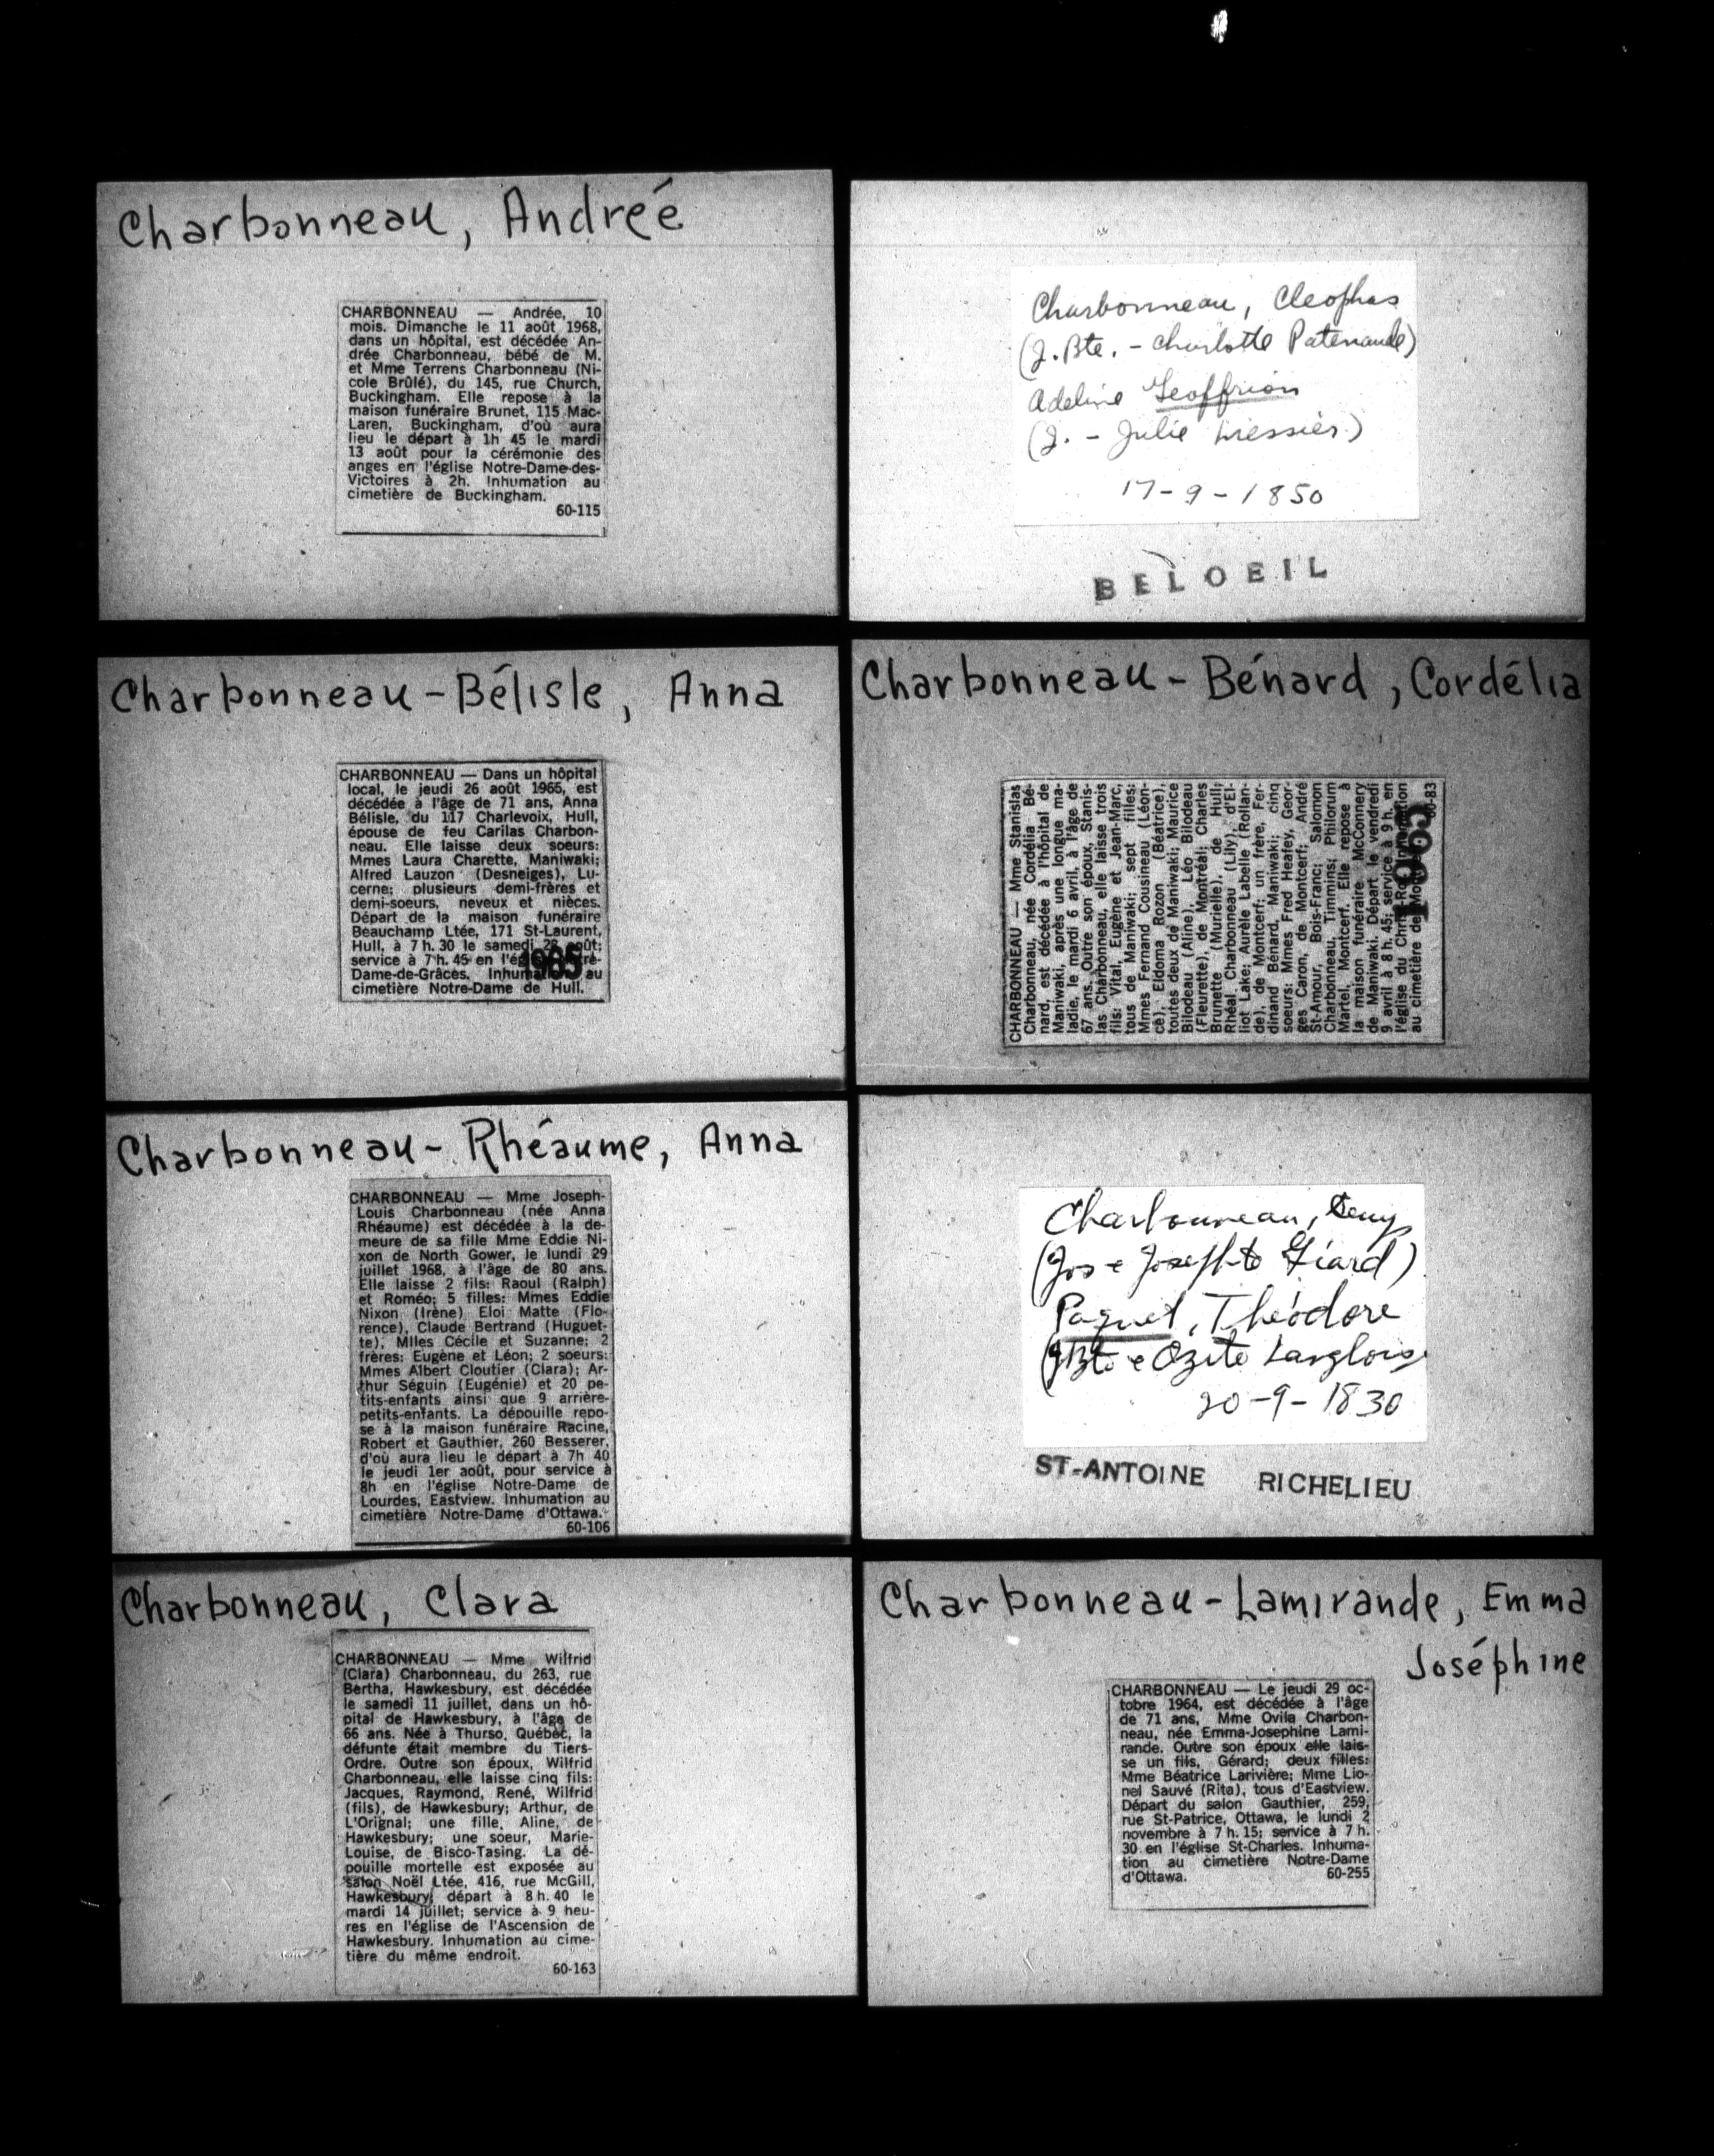 Charbonneau, Andrée
CHARBONNEAU — Andrée, 10
mois. Dimanche le 11 août 1968,
dans un hôpital, est décédée An-
drée Charbonneau, bébé de M.
et Mme Terrens Charbonneau (Ni-
cole Brûlé), du 145, rue Church,
Buckingham. Elle repose à la
maison funéraire Brunet, 115 Mac-
Laren, Buckingham, d'où aura
lieu le départ à 1h 45 le mardi
13 août pour la cérémonie des
anges en l'église Notre-Dame-des-
Victoires à 2h. Inhumation au
cimetière de Buckingham.
60-115
Charbonneau, Cleophas
(J. Bte. - Charlotte Patenaude)
Adeline Geoffrion
(J. - Julie Messier)
17-9-1850
BELOEIL
Charbonneau-Bélisle, Anna
CHARBONNEAU — Dans un hôpital
local, le jeudi 26 août 1965, est
décédée à l'âge de 71 ans, Anna
Bélisle, du 117 Charlevoix, Hull,
épouse de feu Carilas Charbon-
neau. Elle laisse deux soeurs:
Mmes Laura Charette, Maniwaki;
Alfred Lauzon (Desneiges), Lu-
cerne; plusieurs demi-frères et
demi-soeurs, neveux et nièces.
Départ de la maison funéraire
Beauchamp Ltée, 171 St-Laurent,
Hull, à 7 h. 30 le samedi 28 août;
service à 7 h. 45 en l'église Notre-
Dame-de-Grâces. Inhumation au
cimetière Notre-Dame de Hull.
1965
Charbonneau-Bénard, Cordélia
CHARBONNEAU — Mme Stanislas
Charbonneau, née Cordélia Bé-
nard, est décédée à l'hôpital de
Maniwaki, après une longue ma-
ladie, le mardi 6 avril, à l'âge de
67 ans. Outre son époux, Stanis-
las Charbonneau, elle laisse trois
fils: Vital, Eugène et Jean-Marc,
tous de Maniwaki; sept filles:
Mmes Fernand Cousineau (Léon-
ce), Eldoma Rozon (Béatrice),
toutes deux de Maniwaki; Maurice
Bilodeau (Aline), Léo Bilodeau
(Fleurette), de Montréal; Charles
Brunette (Murielle), de Hull;
Rhéal Charbonneau (Lily), d'El-
liot Lake; Aurèle Labelle (Rollan-
de), de Montcerf; un frère, Fer-
dinand Bénard, Maniwaki; cinq
soeurs: Mmes Fred Heafey, Geor-
ges Caron, de Montcerf; André
St-Amour, Bois-Franc; Salomon
Charbonneau, Timmins; Philorum
Martel, Montcerf. Elle repose à
la maison funéraire McConnery
de Maniwaki. Départ le vendredi
9 avril à 8 h. 45; service à 9 h. en
l'église du Christ-Roi. Inhumation
au cimetière de
60-83
Charbonneau-Rhéaume, Anna
CHARBONNEAU — Mme Joseph-
Louis Charbonneau (née Anna
Rhéaume) est décédée à la de-
meure de sa fille Mme Eddie Ni-
xon de North Gower, le lundi 29
juillet 1968, à l'âge de 80 ans.
Elle laisse 2 fils: Raoul (Ralph)
et Roméo; 5 filles: Mmes Eddie
Nixon (Irène) Eloi Matte (Flo-
rence), Claude Bertrand (Huguet-
te), Mlles Cécile et Suzanne; 2
frères: Eugène et Léon; 2 soeurs:
Mmes Albert Cloutier (Clara); Ar-
thur Séguin (Eugénie) et 20 pe-
tits-enfants ainsi que 9 arrière-
petits-enfants. La dépouille repo-
se à la maison funéraire Racine,
Robert et Gauthier, 260 Besserer,
d'où aura lieu le départ à 7h 40
le jeudi 1er août, pour service à
8h en l'église Notre-Dame de
Lourdes, Eastview. Inhumation au
cimetière Notre-Dame d'Ottawa.
60-106
Charbonneau,
(Jos e Josephte Giard)
Paquet, Théodore
(JBte e Ozite Langlois
20-9-1830
ST-ANTOINE RICHELIEU
Charbonneau, Clara
CHARBONNEAU — Mme Wilfrid
(Clara) Charbonneau, du 263, rue
Bertha, Hawkesbury, est décédée
le samedi 11 juillet, dans un hô-
pital de Hawkesbury, à l'âge de
66 ans. Née à Thurso, Québec, la
défunte était membre du Tiers-
Ordre. Outre son époux, Wilfrid
Charbonneau, elle laisse cinq fils:
Jacques, Raymond, René, Wilfrid
(fils), de Hawkesbury; Arthur, de
L'Orignal; une fille, Aline, de
Hawkesbury; une soeur, Marie-
Louise, de Bisco-Tasing. La dé-
pouille mortelle est exposée au
salon Noël Ltée, 416, rue McGill,
Hawkesbury; départ à 8 h. 40 le
mardi 14 juillet; service à 9 heu-
res en l'église de l'Ascension de
Hawkesbury. Inhumation au cime-
tière du même endroit.
60-163
Charbonneau-Lamirande, Emma
Joséphine
CHARBONNEAU — Le jeudi 29 oc-
tobre 1964, est décédée à l'âge
de 71 ans, Mme Ovila Charbon-
neau, née Emma-Josephine Lami-
rande. Outre son époux elle lais-
se un fils, Gérard; deux filles:
Mme Béatrice Larivière; Mme Lio-
nel Sauvé (Rita), tous d'Eastview.
Départ du salon Gauthier, 259,
rue St-Patrice, Ottawa, le lundi 2
novembre à 7 h. 15; service à 7 h.
30 en l'église St-Charles. Inhuma-
tion au cimetière Notre-Dame
d'Ottawa.
60-255